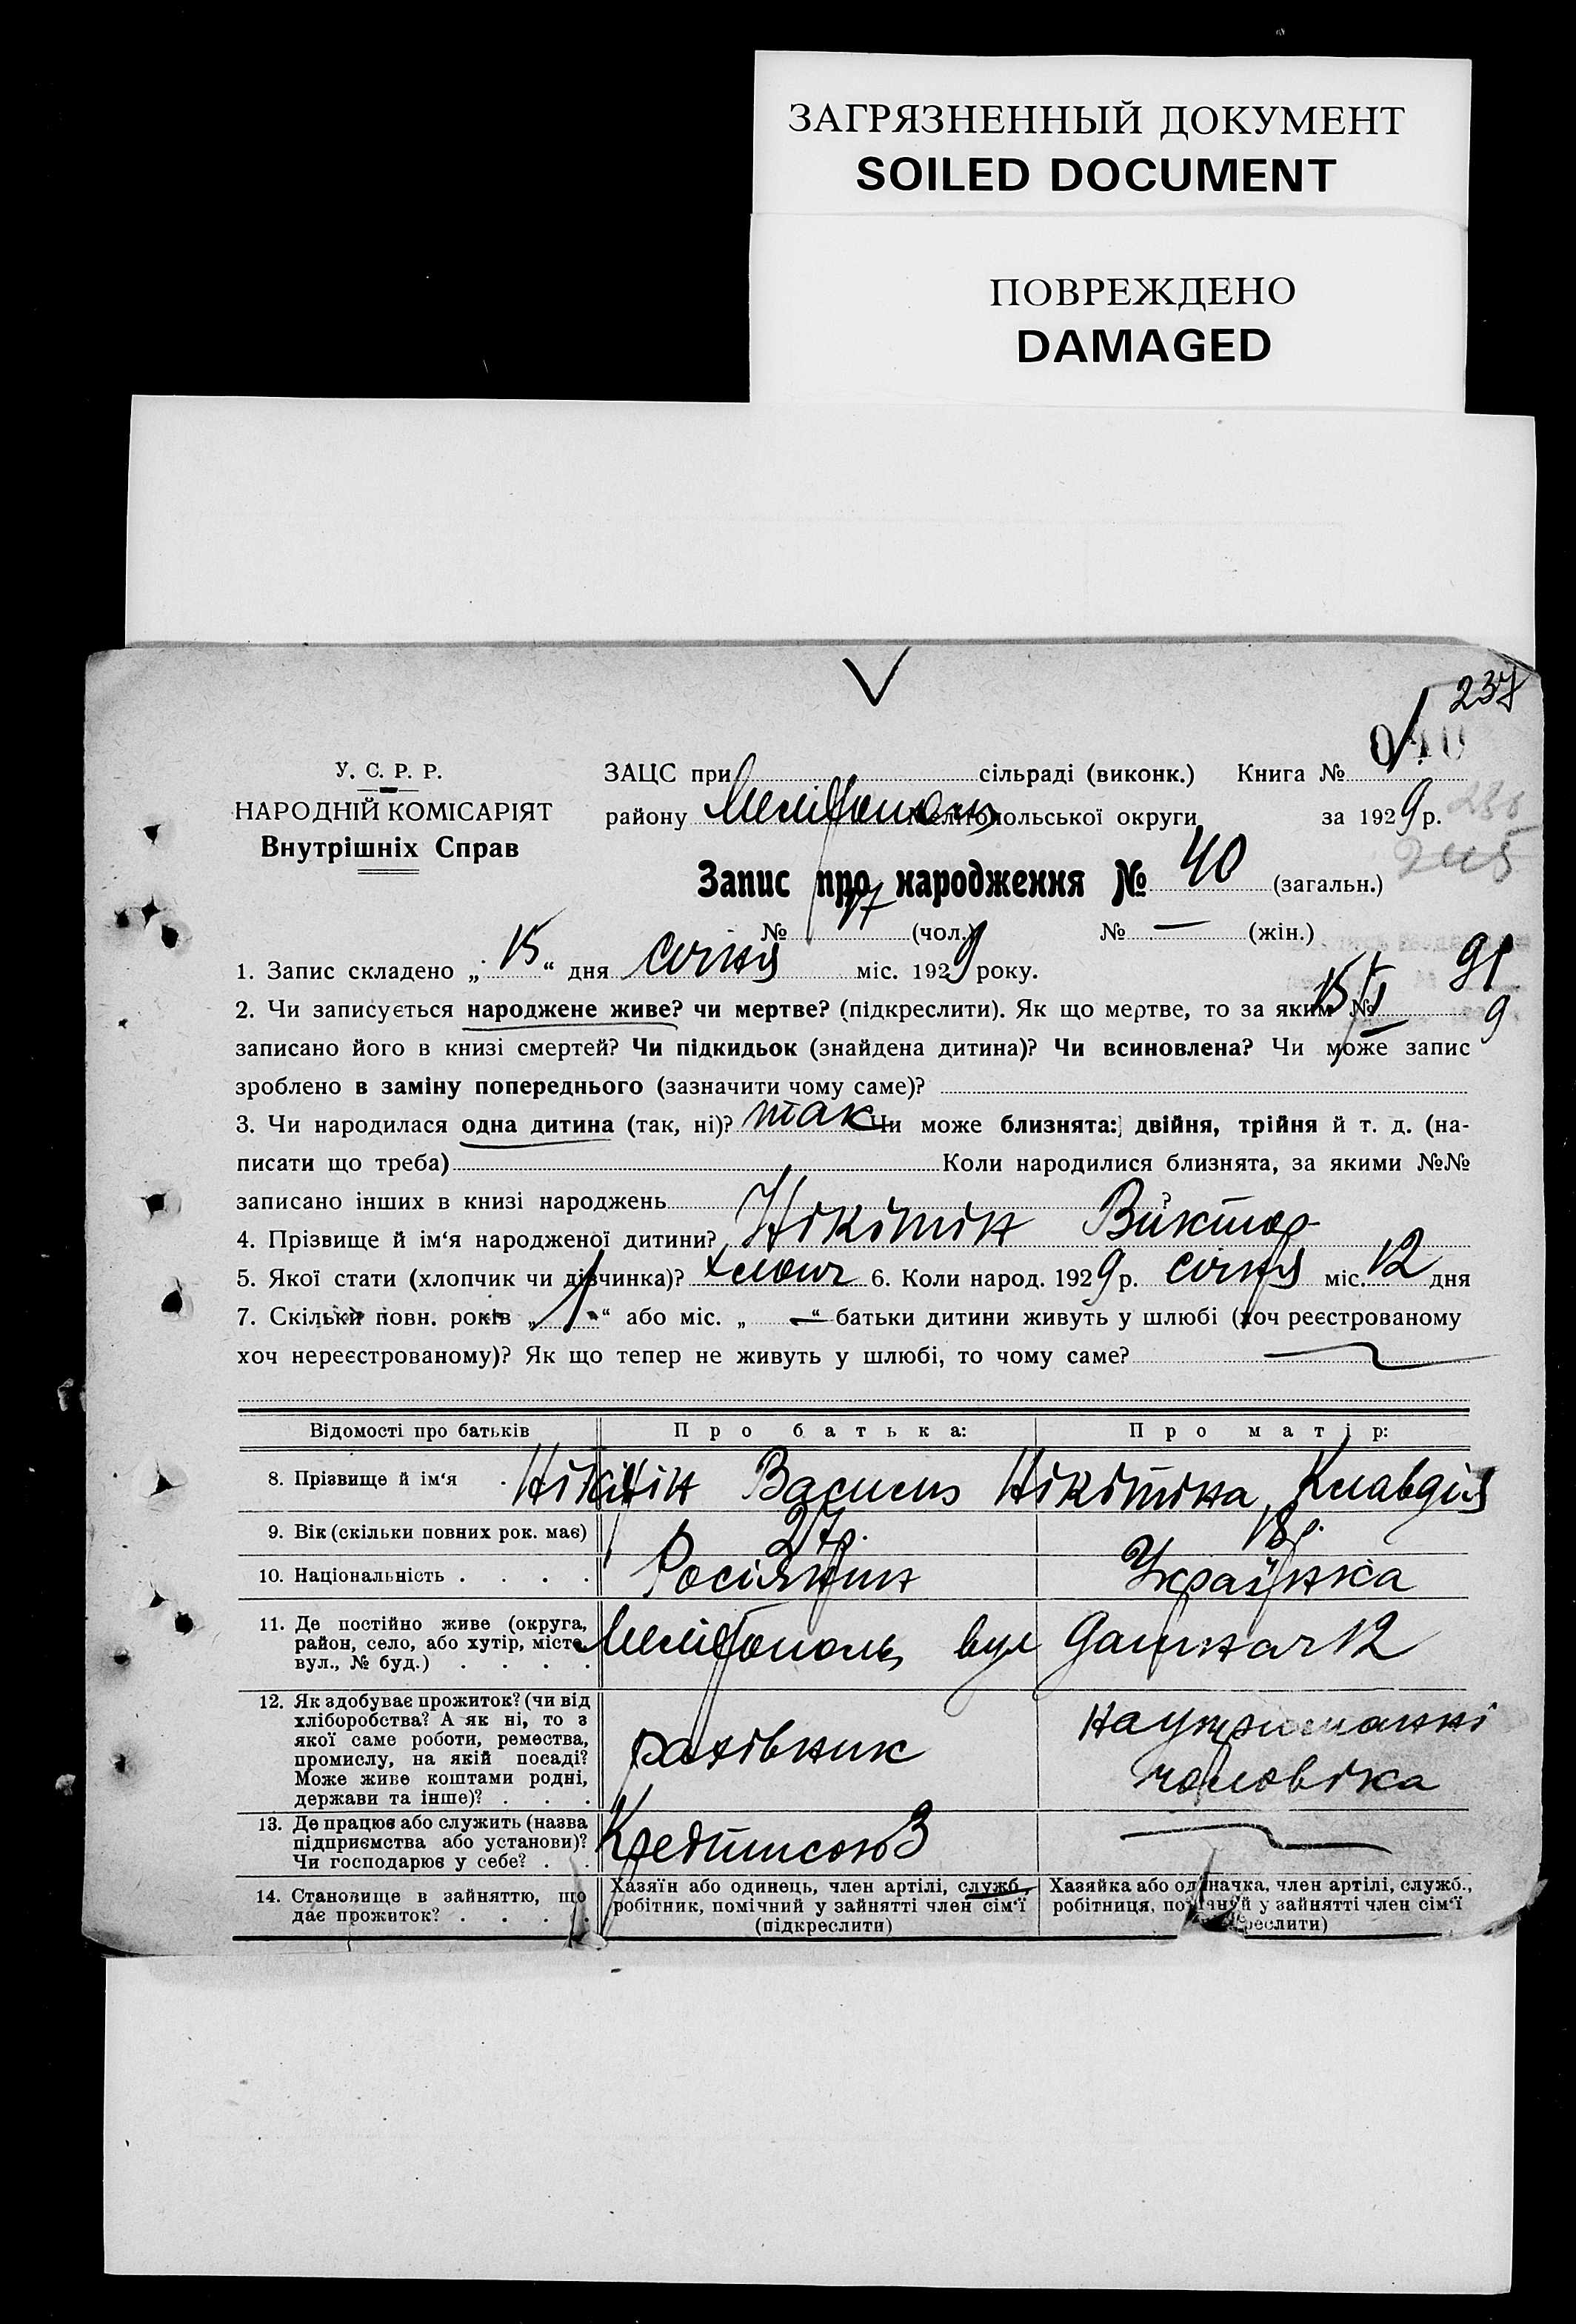 ЗАГРЯЗНЕННЫЙ ДОКУМЕНТ
SOILED DOCUMENT
ПОВРЕЖДЕНО
DAMAGED
237
040
У. С. Р. Р.
НАРОДНІЙ КОМІСАРІЯТ
Внутрішніх Справ
ЗАЦС при сільраді (виконк.) Книга №
району Мелітополь Мелітопольської округи за 1929 р.
Запис про народження № 40 (загальн.)
245
№ 17 (чол.) № — (жін.)
1. Запис складено „ 15 “ дня січня міс. 1929 року.
2. Чи записується народжене живе? чи мертве? (підкреслити). Як що мертве, то за яким №
записано його в книзі смертей? Чи підкидьок (знайдена дитина)? Чи всиновлена? Чи може запис
зроблено в заміну попереднього (зазначити чому саме)?
3. Чи народилася одна дитина (так, ні)? так Чи може близнята: двійня, трійня й т. д. (на-
писати що треба) Коли народилися близнята, за якими №№
записано інших в книзі народжень ?
4. Прізвище й ім‘я народженої дитини? Нікітін Віктор
5. Якої стати (хлопчик чи дівчинка)? хлопч 6. Коли народ. 1929 р. січня міс. 12 дня
7. Скільки повн. років „ 1 “ або міс. „ — “ батьки дитини живуть у шлюбі (хоч реєстрованому
хоч нереєстрованому)? Як що тепер не живуть у шлюбі, то чому саме?
Відомості про батьків Про батька: Про матір:
8. Прізвище й ім‘я . Нікітін Василь Нікітіна Клавдія
9. Вік (скільки повних рок. має) 27 р. 18 р.
10. Національність . . . . Росіянин Українка
11. Де постійно живе (округа,
район, село, або хутір, місто,
вул., № буд.) . . . .
Мелітополь вул 12
12. Як здобуває прожиток? (чи від
хліборобства? А як ні, то з
якої саме роботи, ремества,
промислу, на якій посаді?
Може живе коштами родні,
держави та інше)? . . .
рахівник
на утриманні
чоловіка
13. Де працює або служить (назва
підприємства або установи)?
Чи господарює у себе? . .
Кредитсоюз
14. Становище в зайняттю, що
дає прожиток? . . . .
Хазяїн або одинець, член артілі, служб.,
робітник, помічний у зайнятті член сім‘ї
(підкреслити)
Хазяйка або одиначка, член артілі, служб.,
робітниця, помічний у зайнятті член сім‘ї
(підкреслити)